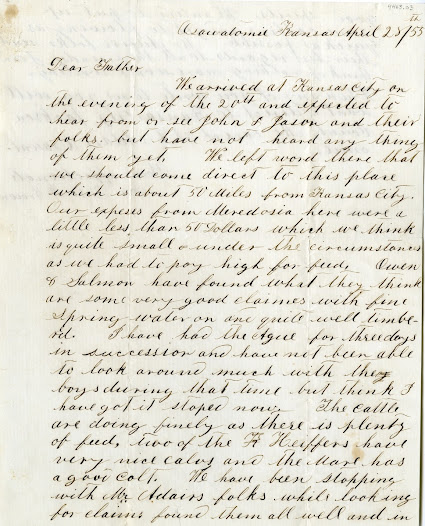 Osawatomie Kansas April 25/55
Dear Father
We arrived at Kansas City on
the evening of the 20th and expected to
hear from or see John & Jason and their
folks. but have not heard any thing
of them yet. We left word there that
we should come direct to this place
which is about 50 Miles from Kansas City.
Our expeses from Meredosia here were a
little less than 50 Dollars which we think
is quite small under the circumstances
as we had to pay high for feed. Owen
& Salmon have found what they think
are some very good claimes with fine
Spring water on one quite well timbe-
rd. I have had the Ague for three days
in successson and have not been able
to look around much with the
boys during that time but think I
have got it stoped now. The cattle
are doing finely as there is plenty
of feed, two of the Heiffers have
very nice calvs and the Mare has
a good Colt. We have been stopping
with Mr Adairs folks while looking
for claims found them all well and in